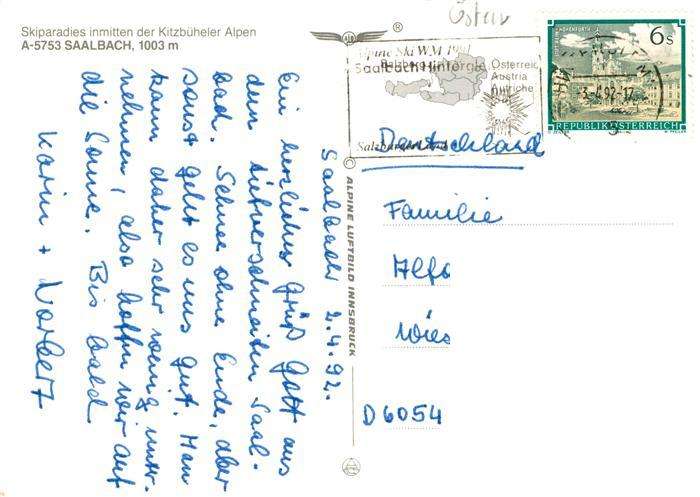 Skiparadies inmitten der Kitzbüheler Alpen
A-5753 SAALBACH, 1003 m
Saalbach 2.4.92.
Ein herzliches Grüß Gott aus
dem tiefverschneiten Saal-
bach. Schnee ohne Ende, aber
sonst geht es uns gut. Man
kann daher sehr wenig unter-
nehmen, also hoffen wir auf
die Sonne. Bis bald
Karin + Norbert
© ALPINE LUFTBILD INNSBRUCK
®
Österr
Alpine Ski WM 1991
Saalbach Hinterglemm
Österreich
Austria
Autriche
Salzburger Land
-3.-4.92-17
6s
REPUBLIK ÖSTERREICH
Deutschland
Familie
Alfo
Wies
D 6054